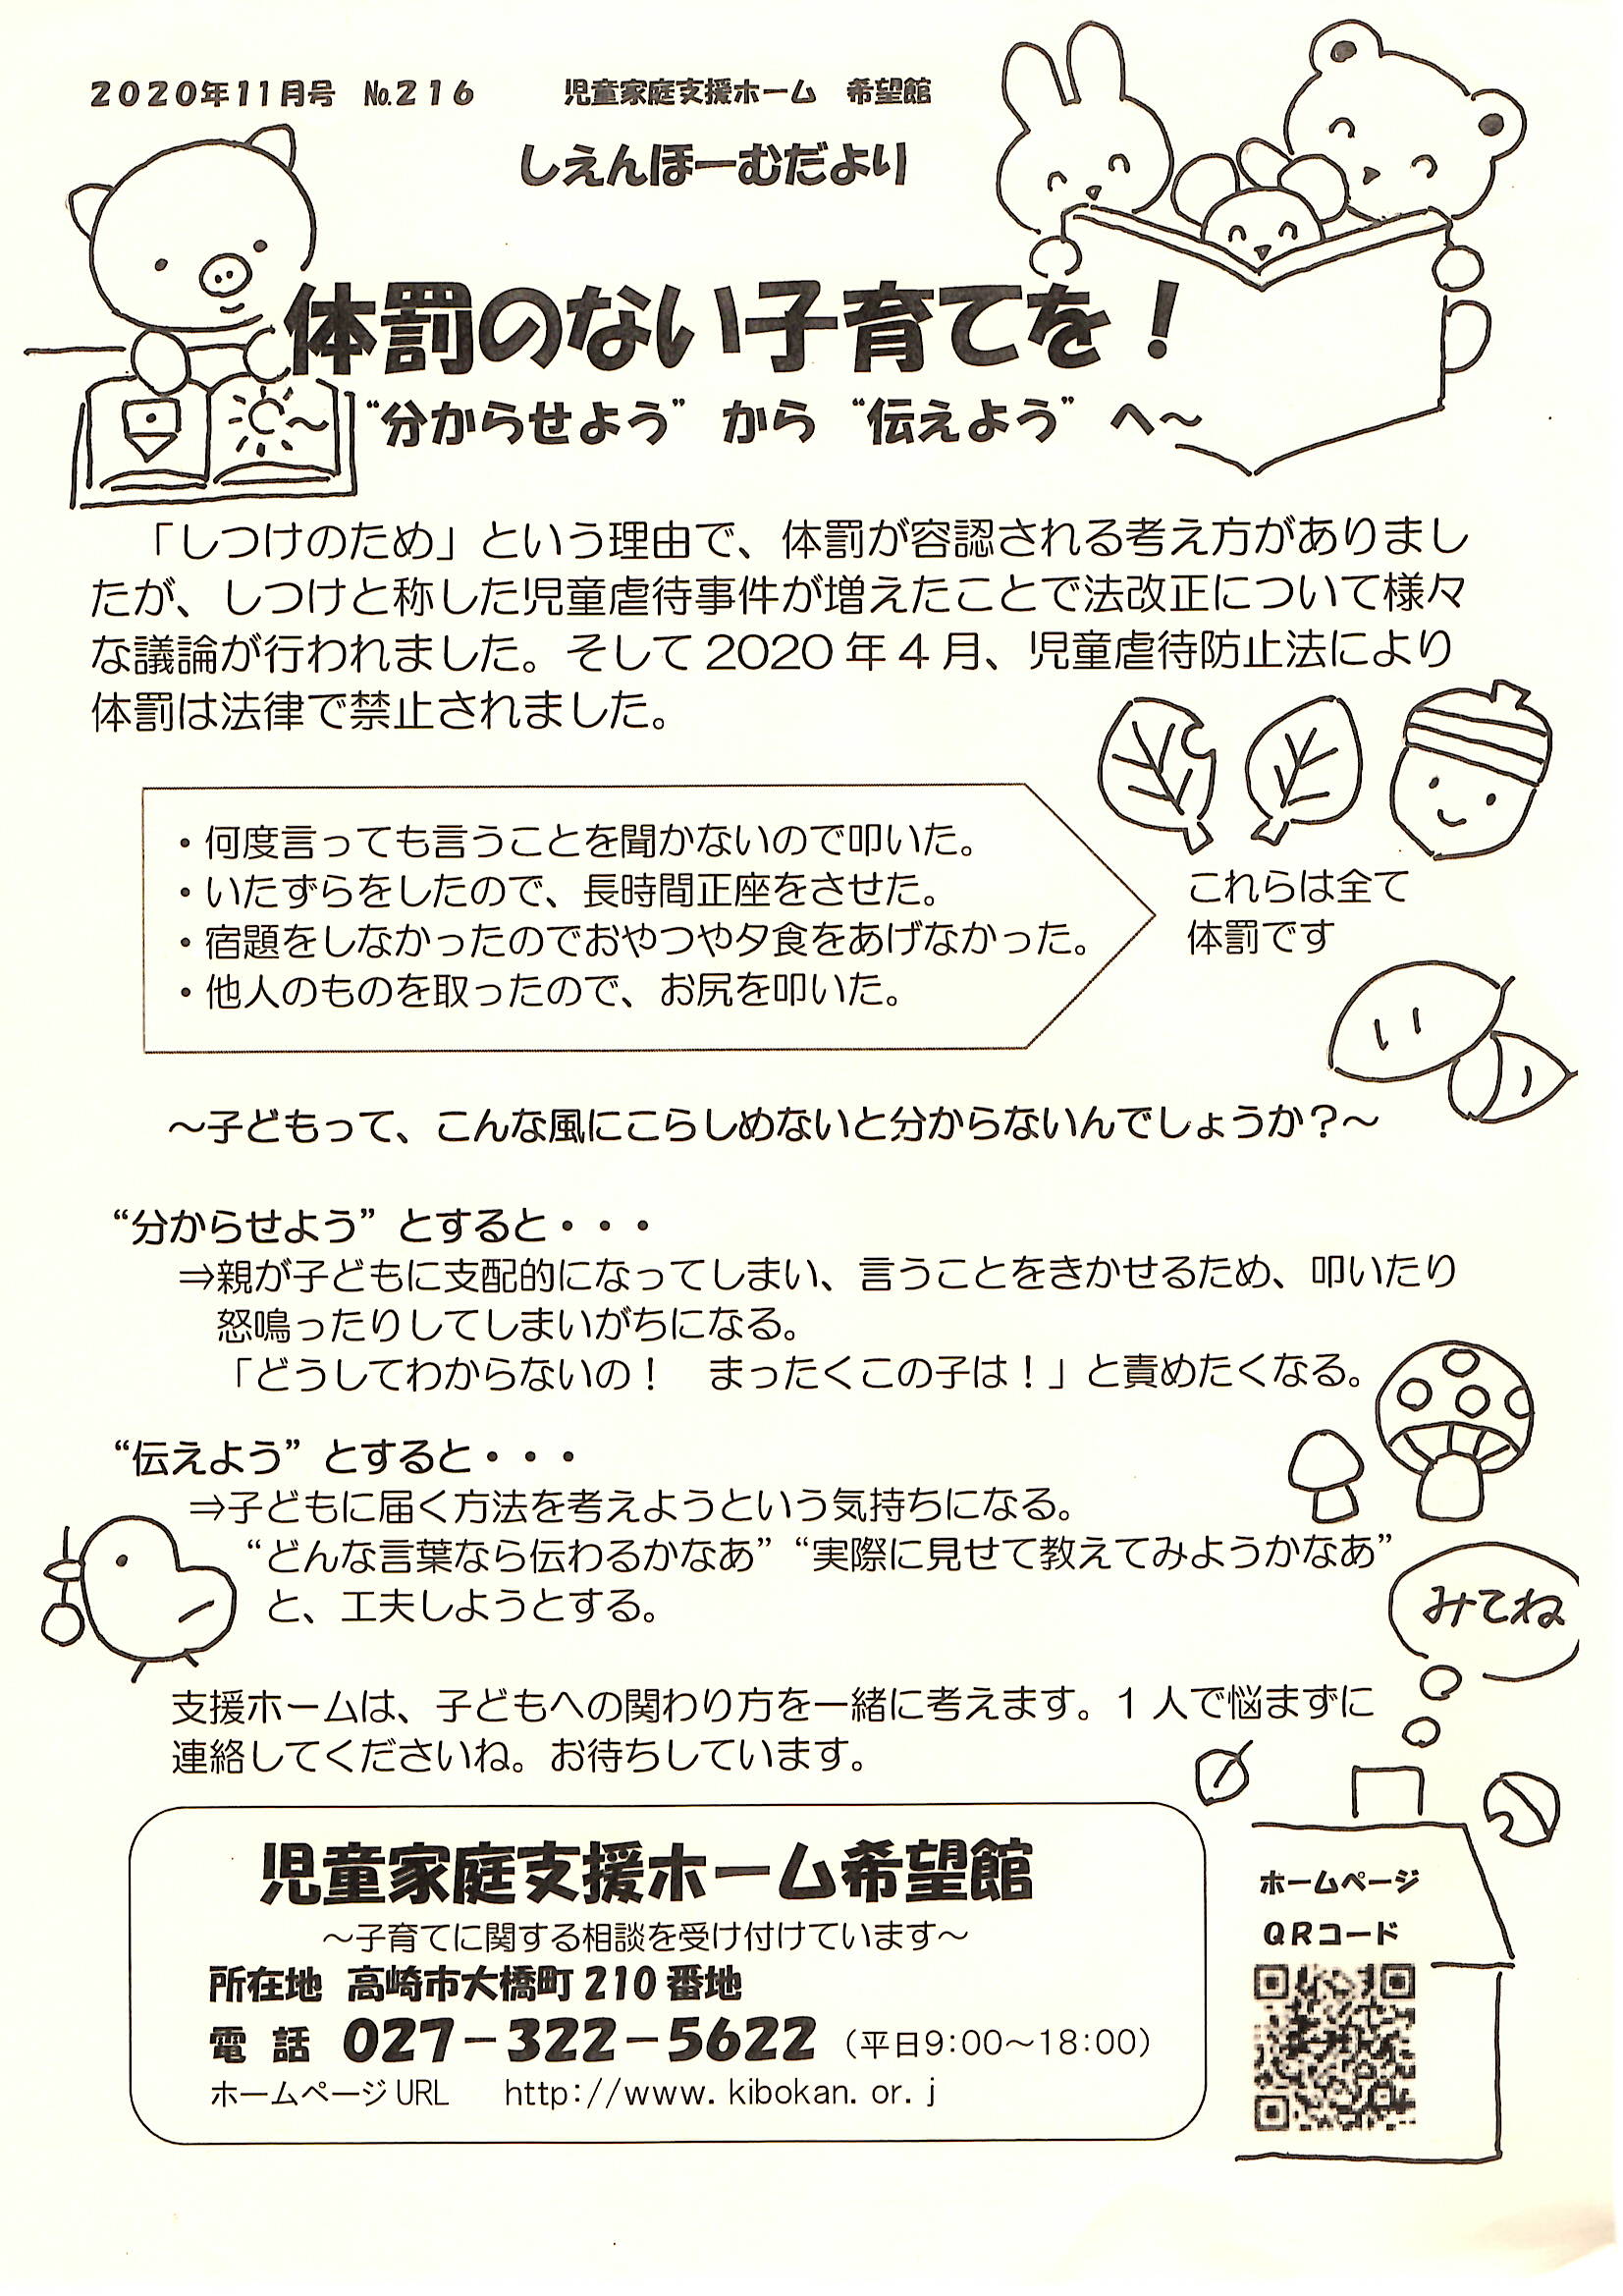 2020年11月号 №216 児童家庭支援ホーム 希望館
しえんほーむだより
体罰のない子育てを！
～“分からせよう” から “伝えよう” へ～
「しつけのため」という理由で、体罰が容認される考え方がありまし
たが、しつけと称した児童虐待事件が増えたことで法改正について様々
な議論が行われました。そして 2020 年 4 月、児童虐待防止法により
体罰は法律で禁止されました。
・何度言っても言うことを聞かないので叩いた。
・いたずらをしたので、長時間正座をさせた。
・宿題をしなかったのでおやつや夕食をあげなかった。
・他人のものを取ったので、お尻を叩いた。
これらは全て
体罰です
～子どもって、こんな風にこらしめないと分からないんでしょうか？～
“分からせよう” とすると・・・
⇒親が子どもに支配的になってしまい、言うことをきかせるため、叩いたり
怒鳴ったりしてしまいがちになる。
「どうしてわからないの！ まったくこの子は！」と責めたくなる。
“伝えよう” とすると・・・
⇒子どもに届く方法を考えようという気持ちになる。
“どんな言葉なら伝わるかなあ” “実際に見せて教えてみようかなあ”
と、工夫しようとする。
みてね
支援ホームは、子どもへの関わり方を一緒に考えます。1 人で悩まずに
連絡してくださいね。お待ちしています。
児童家庭支援ホーム希望館
～子育てに関する相談を受け付けています～
所在地 高崎市大橋町 210 番地
電 話 027－322－5622（平日9:00～18:00）
ホームページ URL http://www.kibokan.or.j
ホームページ
QRコード